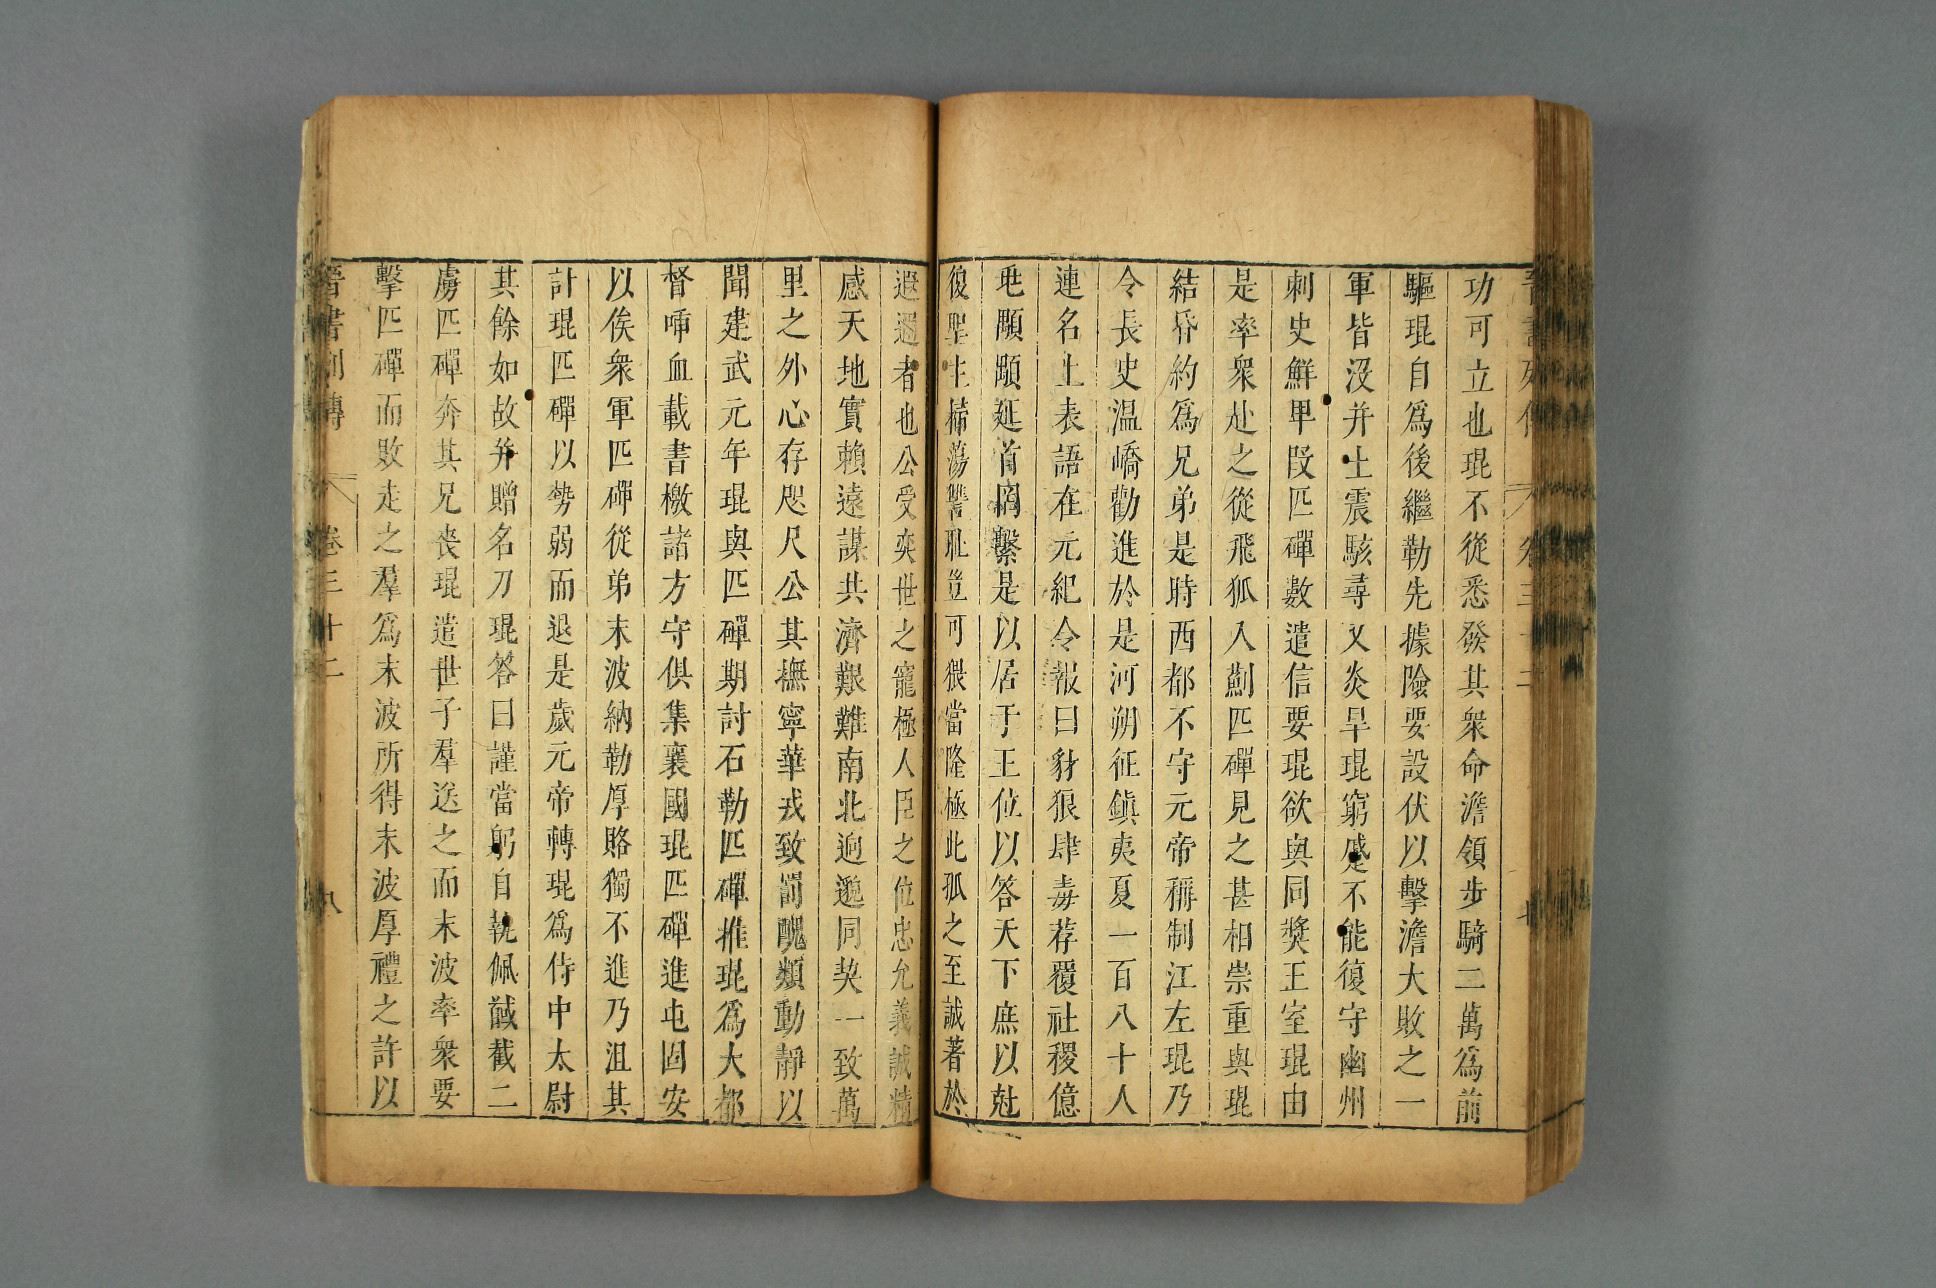 功可立也琨不從悉發其衆命澹領步騎二萬爲前
驅琨自爲後繼勒先據險要設伏以擊澹大敗之一
軍皆沒并土震駭尋又炎旱琨窮蹙不能復守幽州
刺史鮮卑段匹磾數遣信要琨欲與同奬王室琨由
是率衆赴之從飛狐入薊匹磾見之甚相崇重與琨
結昏約爲兄弟是時西都不守元帝稱制江左琨乃
令長史温嶠勸進於是河朔征鎮夷夏一百八十人
連名上表語在元紀令報曰豺狼肆毒荐覆社稷億
兆顒顒延首罔繫是以居于王位以答天下庶以尅
復聖主掃蕩讐恥豈可猥當隆極此孤之至誠著於
遐邇者也公受奕世之寵極人臣之位忠允義誠精
感天地實賴遠謀共濟艱難南北迥邈同契一致萬
里之外心存咫尺公其撫寧華戎致罰醜類動靜以
聞建武元年琨與匹磾期討石勒匹磾推琨爲大都
督啑血載書檄諸方守俱集襄國琨匹磾進屯固安
以俟衆軍匹磾從弟末波納勒厚賂獨不進乃沮其
計琨匹磾以勢弱而退是歲元帝轉琨爲侍中太尉
其餘如故并贈名刀琨答曰謹當躬自執佩馘截二
虜匹磾奔其兄喪琨遣世子羣送之而末波率衆要
擊匹磾而敗走之羣爲末波所得末波厚禮之許以
晉書列傳 卷三十二 八